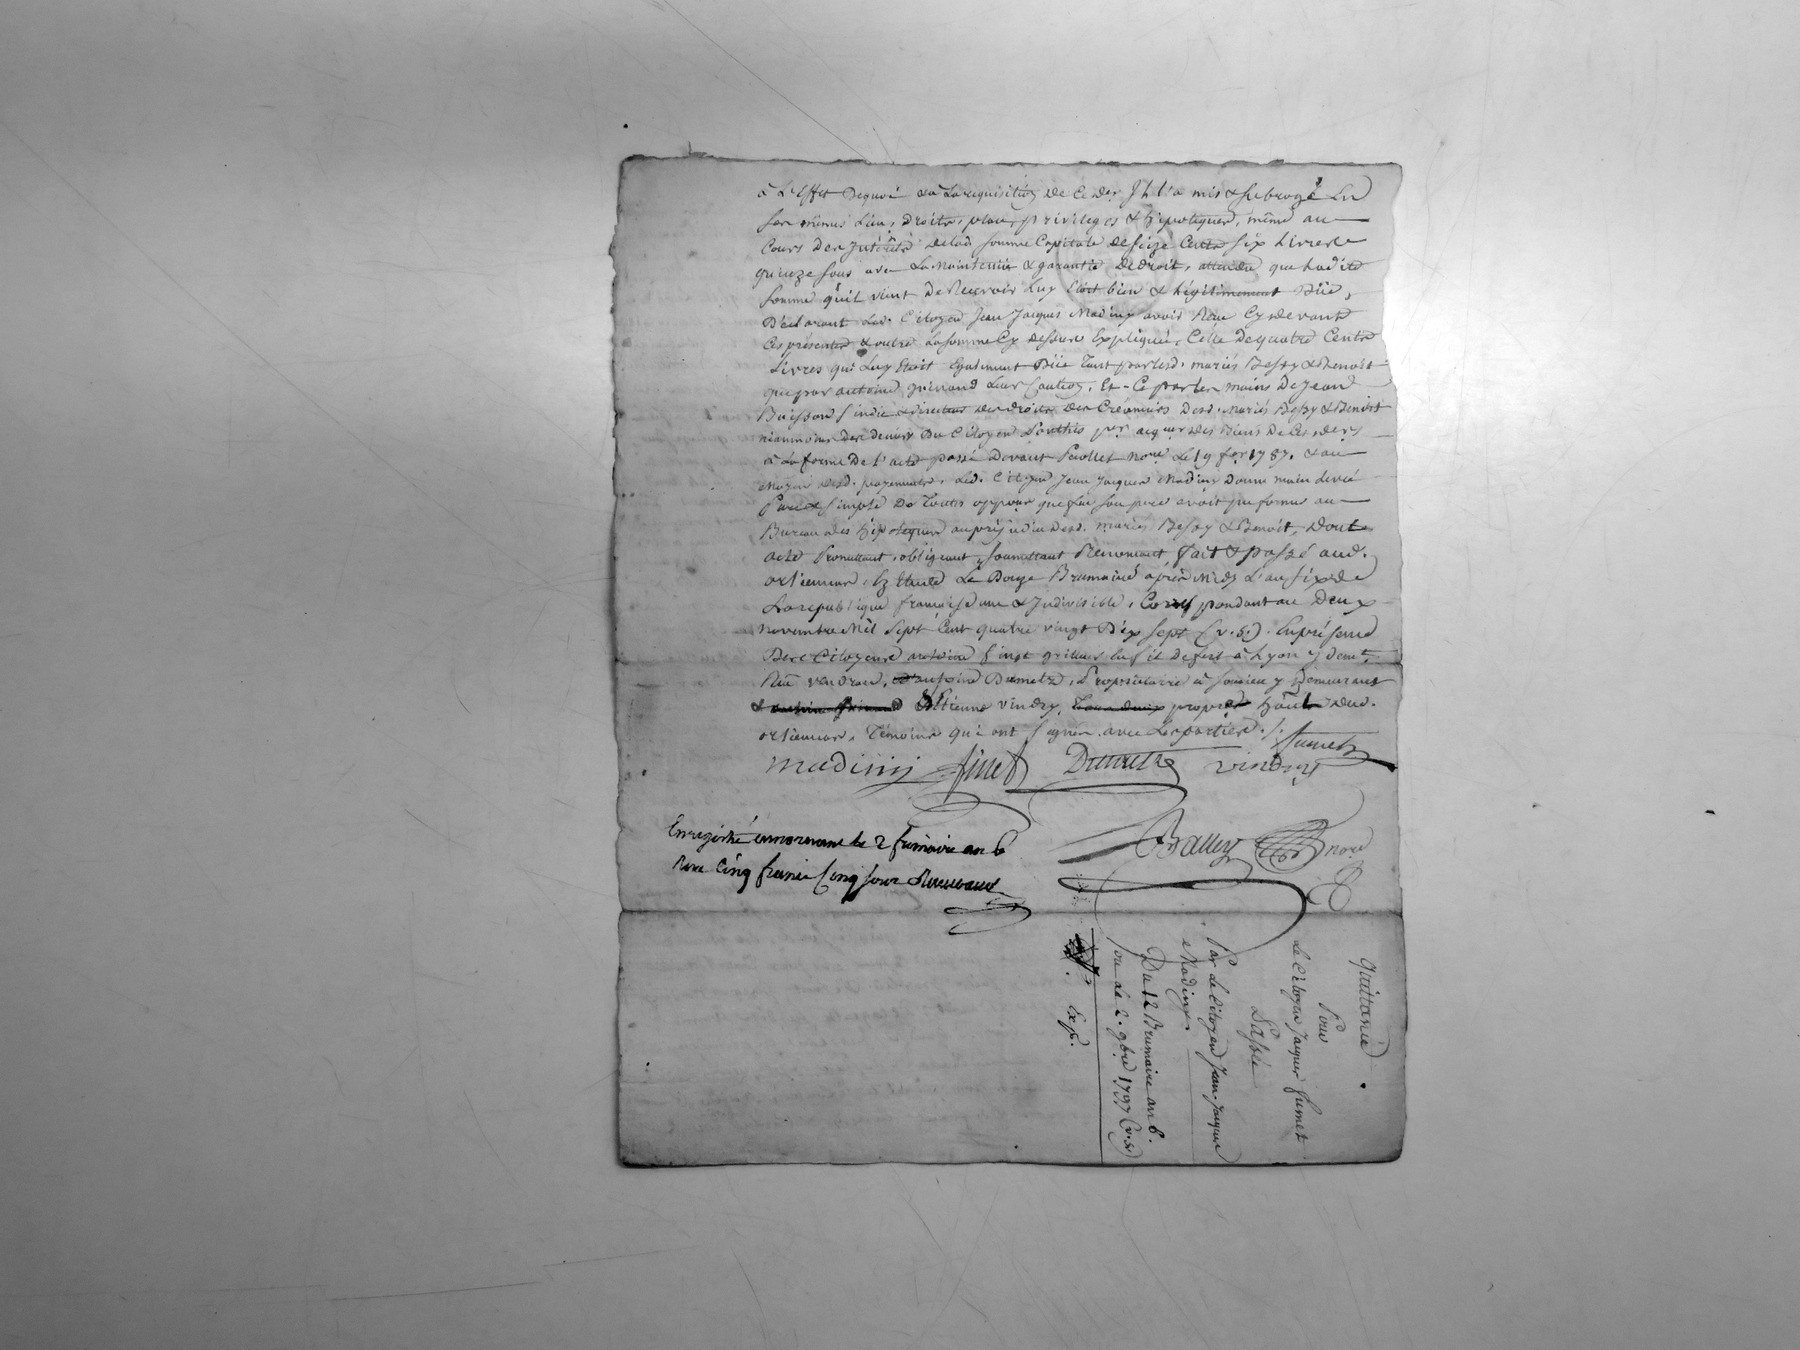 à L'Effet Dequoi et à La requisition de Ce der. Il l'a mis & subrogé En
ses mêmes Lieu, droits, place, privileges & hipoteques, même au
Cours Des Intérêts delad. somme Capitale de seize Cents six Livres
quinze sous avec La Maintenüe & garantie de droit, attendu que Ladite
somme qu'il vient De Recevoir Luy Etoit bien & Légitimement Düe,
Déclarant Led. Citoyen Jean Jacques Madiny avoir Reçu Cy devant
Ces présentes & outre La somme Cy dessus Expliquée, Celle de quatre Cents
Livres qui Luy Etoit Egalement Düe Tant par lesd. mariés Bessy & Benoit
que par antoine grimaud Leur Caution, Et Ce par les mains De Jean
Buisson sindic & directeur des droits des Créanciers Desd. Mariés Bessy & Benoit
néanmoins Des deniers Du Citoyen per. acquer. des Biens De Ces ders
à La forme De l'acte passé Devant nore. Le 19 1787. & au
Moyen desd. payements, Led. Citoyen Jean Jacques Madiny Donne main levée
Pure & simple De Toutes oppons. que feu son pere avoit pu former au
Bureau des hipoteques au préjudice Desd. mariés Bessy & Benoit, Dont
acte Promettant, obligeant, soumettant Renonçant, fait & passé aud.
orlienas, Ez Etude Le Douze Brumaire après Midy L'an six de
La republique française une & Indivisible, Correspondant au Deux
novembre Mil sept Cent quatre vingt Dix sept (v. s.). En présence
Des Citoyens antoine finet à Lyon y demt.
Rüe vendran, Dumetz, Propriétaire à soucieu y Demeurant
& Etienne vindry, propre. Hâbt. aud.
orlienas, Témoins qui ont signés avec Les parties./. fumet
madiniy finet Dumetz vindry
Enregistré à mornant le 2 frimaire an 6
Reçu Cinq francs Cinq sous
nore
Quittance
Pour
Le Citoyen Jacques fumet
Passée
Par Le Citoyen Jean-Jacques
Madiny.
Du 12 Brumaire an 6.
ou Le 2. 9bre 1797 (v. s.)
Exp.